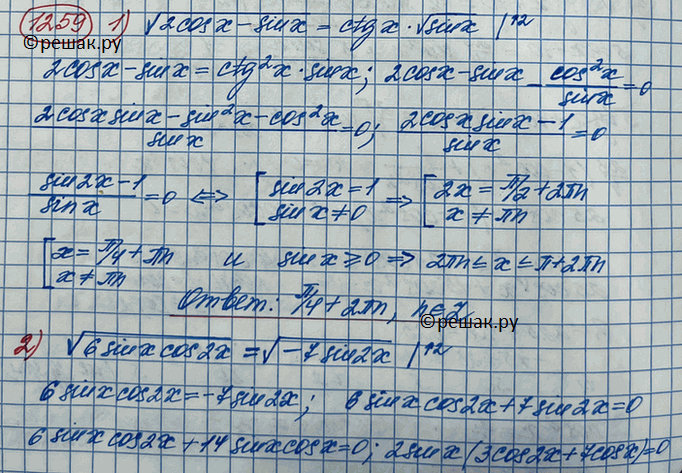 1259 1) √2cosx-sinx = ctgx·√sinx |↑2
©reшак.ру
2cosx-sinx = ctg²x·sinx; 2cosx-sinx - cos²x/sinx = 0
(2cosx sinx - sin²x - cos²x)/sinx = 0; (2cosx sinx - 1)/sinx = 0
(sin2x-1)/sinx = 0 ⟺ [sin2x=1 ⇒ [2x = π/2+2πn
sinx≠0 x≠πn
[x = π/4+πn и sinx ⩾ 0 ⇒ 2πn ≤ x ≤ π+2πn
x≠πn
Ответ: π/4+2πn, n∈Z
©reшак.ру
2) √6sinxcos2x = √-7sin2x |↑2
6sinxcos2x = -7sin2x; 6sinxcos2x+7sin2x=0
6sinxcos2x+14sinxcosx=0; 2sinx(3cos2x+7cosx)=0